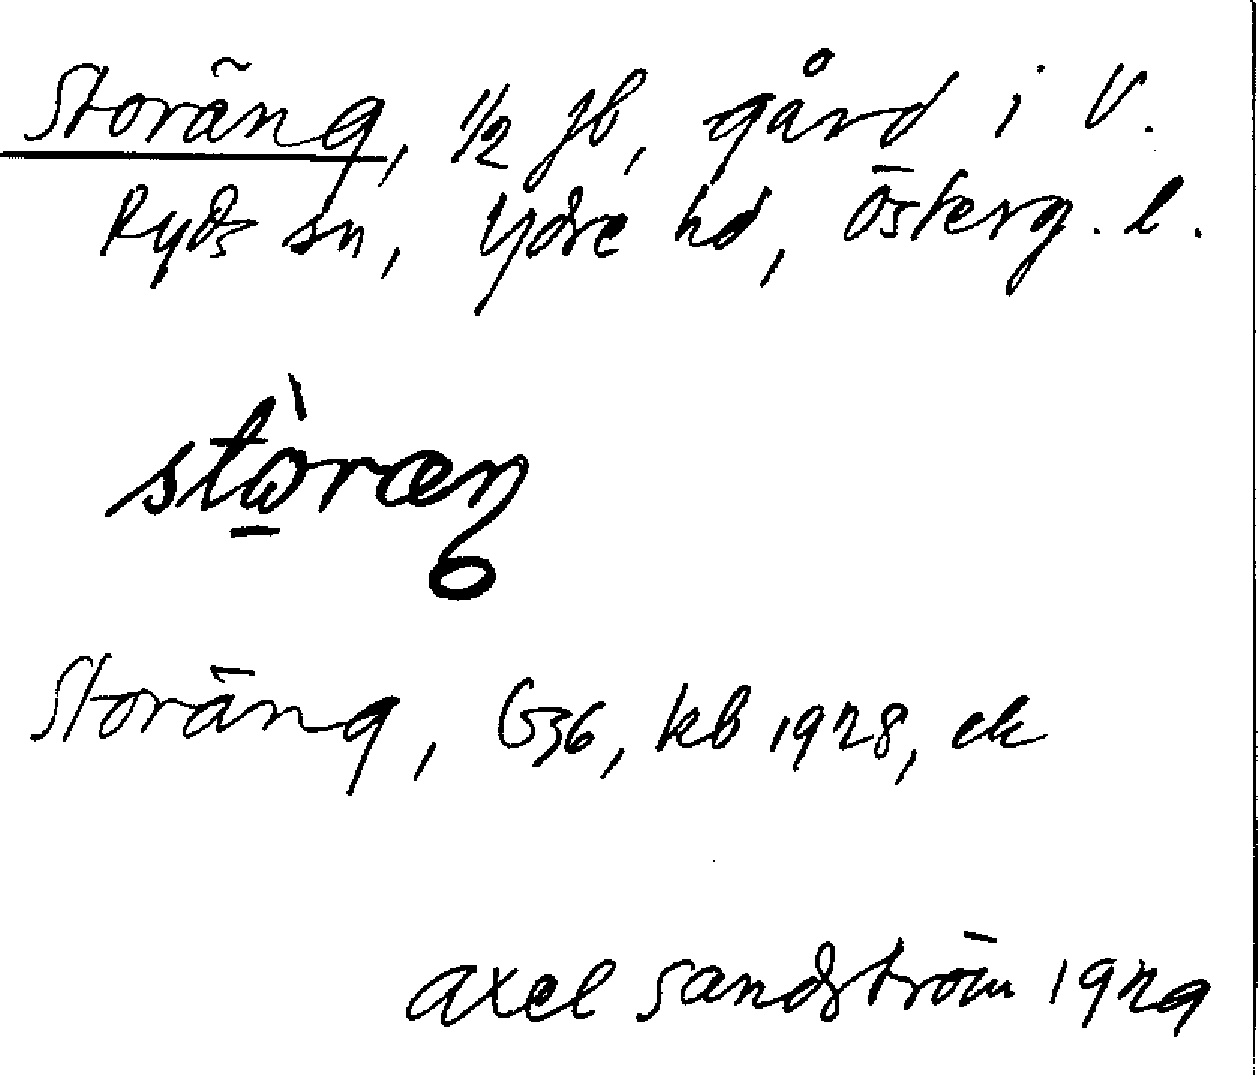 Storäng, 1/2 jb, gård i V.
Ryds sn, Ydre hd, Österg. l.
stòræŋ
Storäng, G36, kb 1928, ek
Axel Sandström 1929